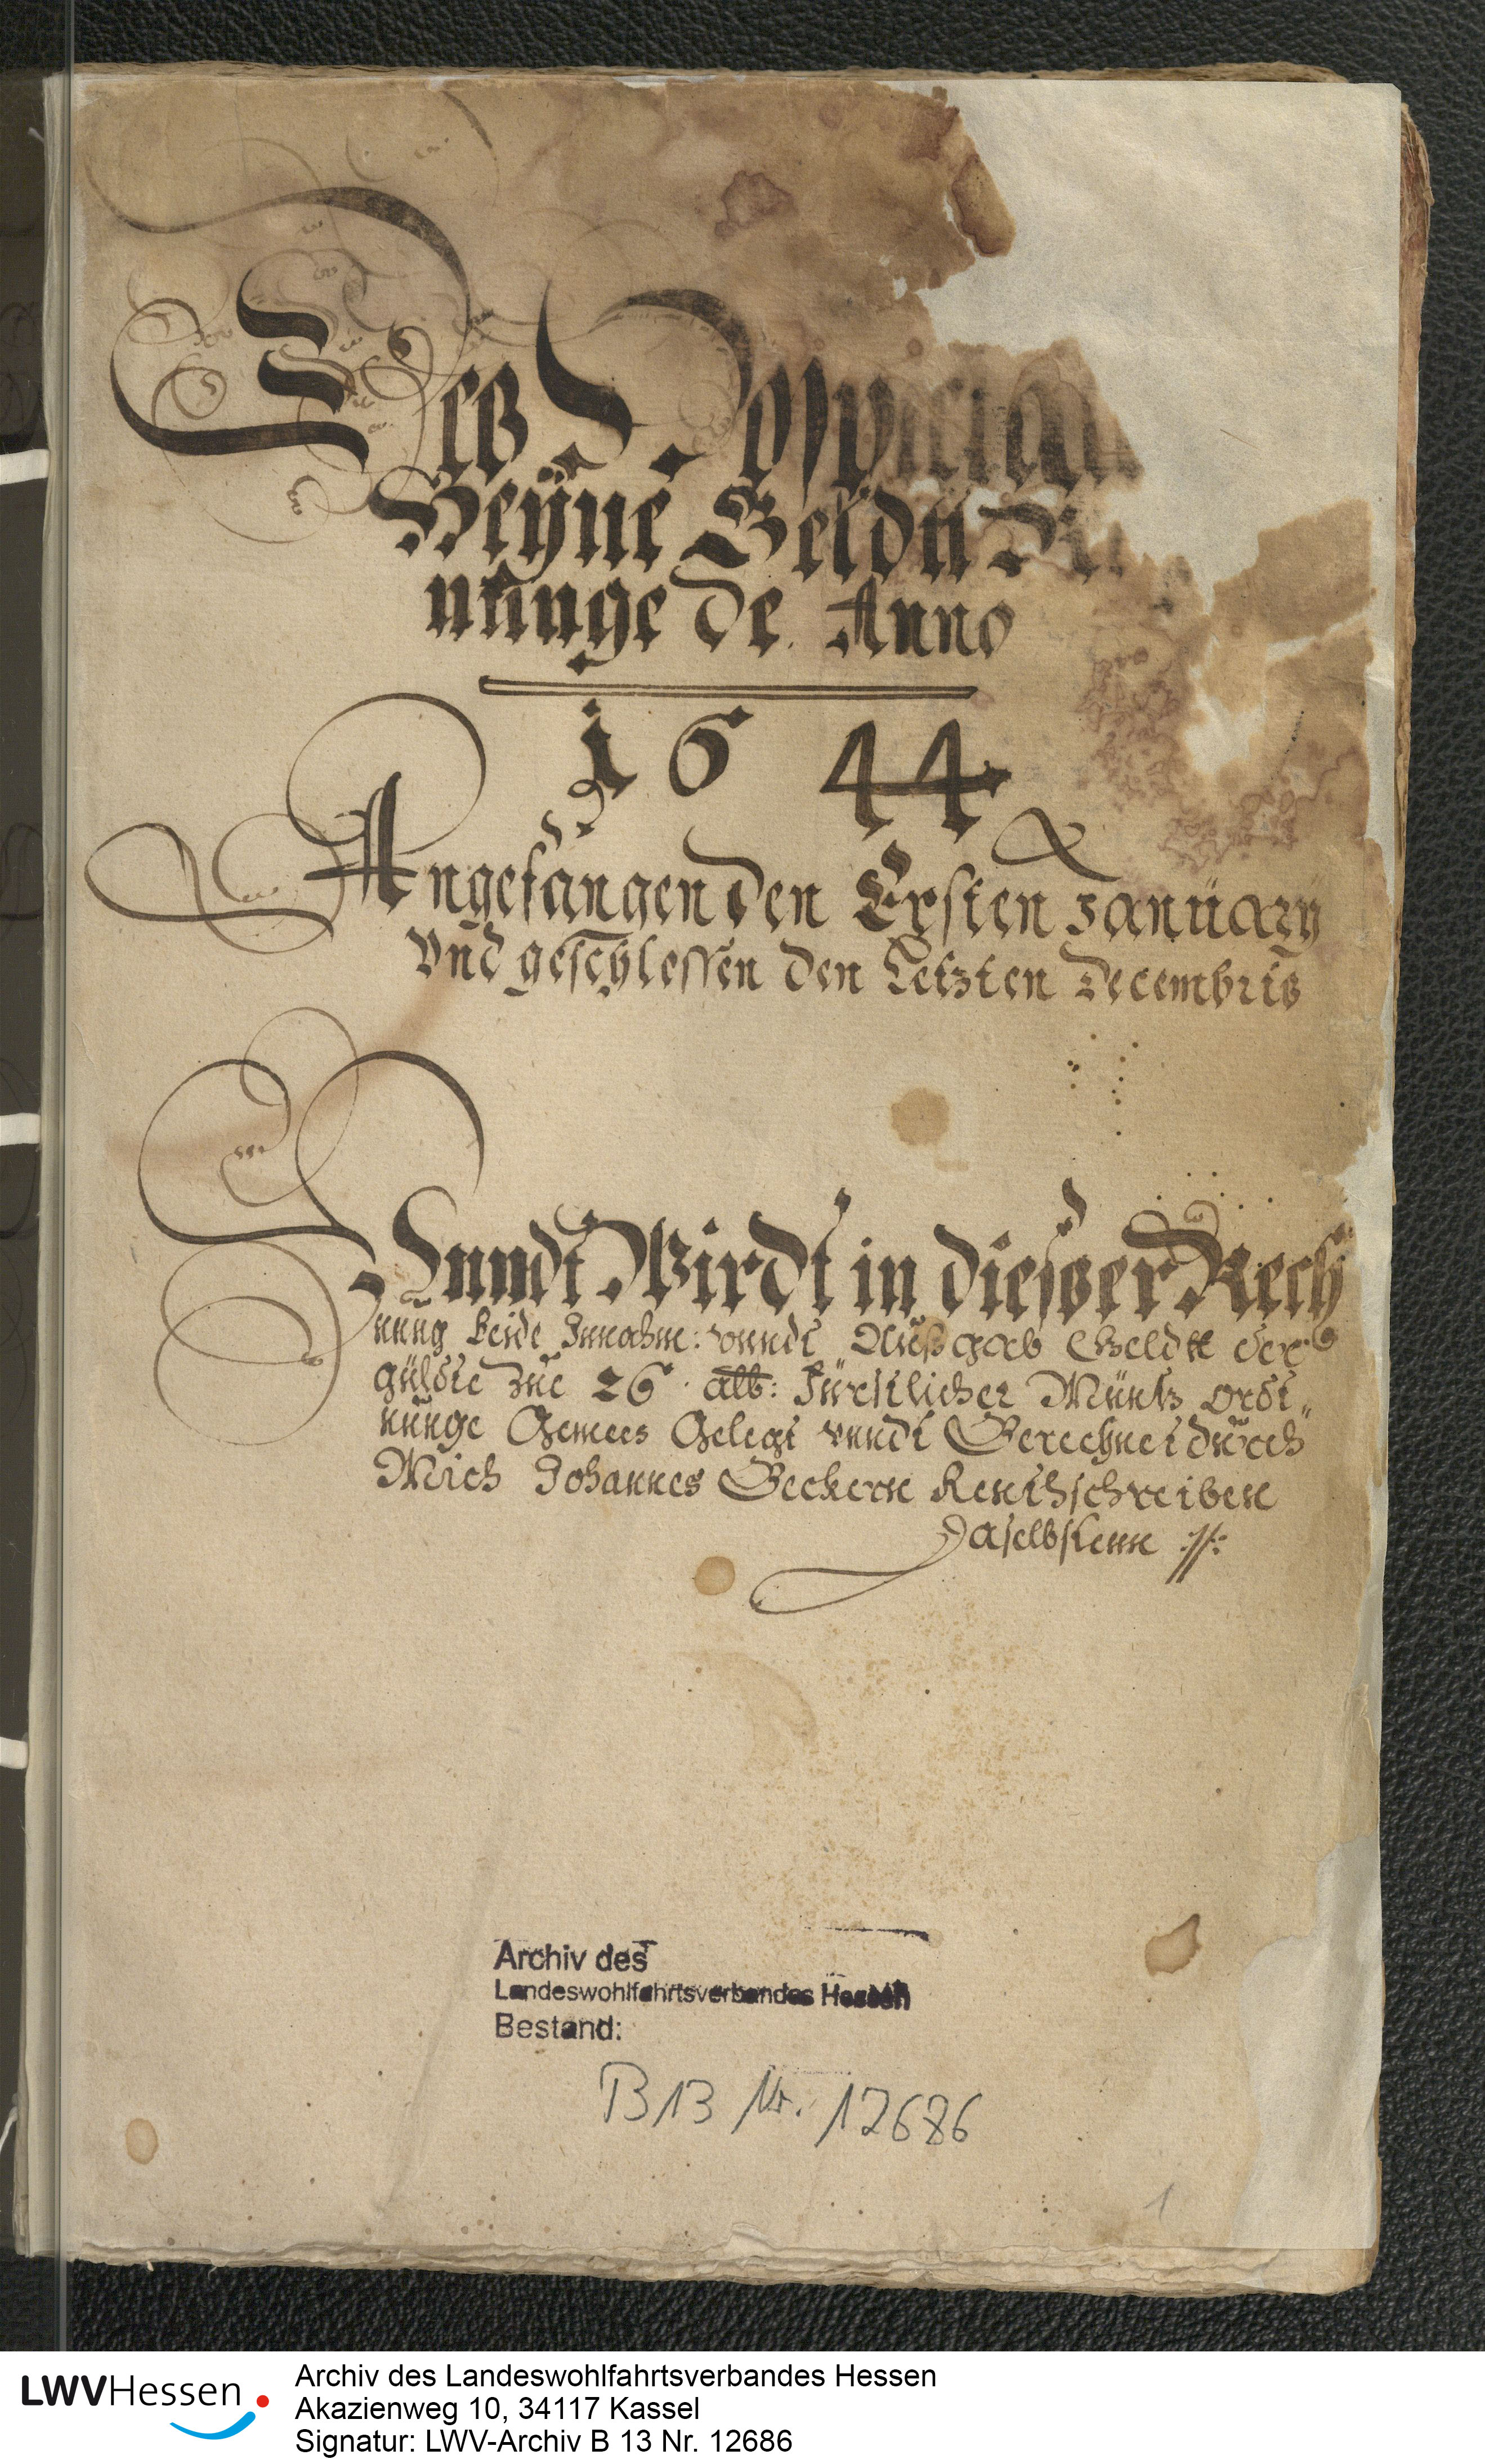 Deß Hospitals
Heÿne Geldtt Re
nunge de Anno
1644
Angefangen den Ersten Januarÿ
Vnd geschlossen den Letzten Decembris
Vnndt Wirdt in dießer Rech
nung beide Innahm: vnndt Außgab Geldtt der
gülde zue 26 alb: Fürstlicher Müntz ordt„
nunge Gemees Gelegt vnndt Berechnet durch
Mich Johannes Beckern Renthschreiben
Daselbstenn
Archiv des
Landeswohlfahrtsverbandes Hessen
Bestand:
B 13 Nr. 12686
1
LWVHessen
Archiv des Landeswohlfahrtsverbandes Hessen
Akazienweg 10, 34117 Kassel
Signatur: LWV-Archiv B 13 Nr. 12686